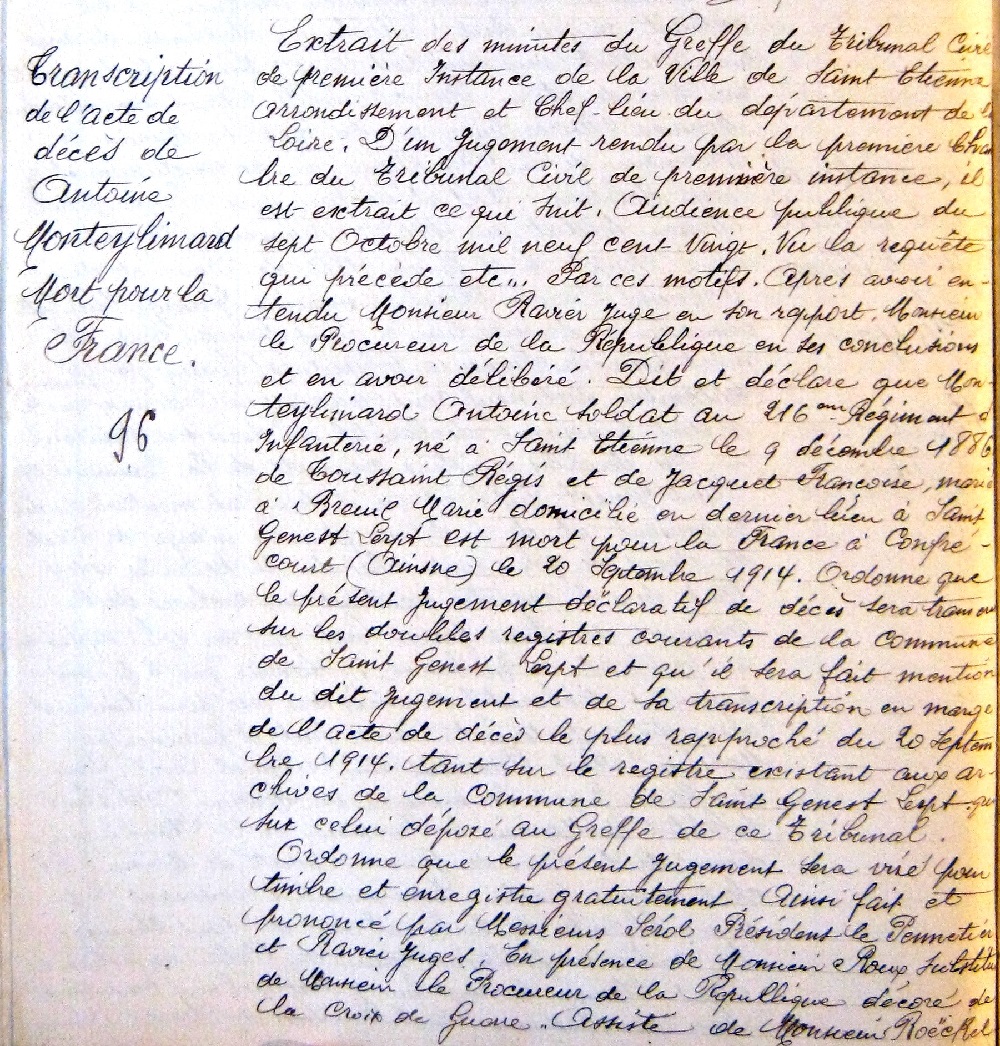 Transcription
de l'acte de
décès de
Antoine
Monteylimard
Mort pour la
France.
96
Extrait des minutes du Greffe du Tribunal Civil
de première Instance de la Ville de Saint Etienne
arrondissement et Chef-lieu du département de la
Loire. D'un Jugement rendu par la première Cham
bre du Tribunal Civil de première instance, il
est extrait ce qui suit. Audience publique du
sept Octobre mil neuf cent Vingt. Vu la requête
qui précède etc... Par ces motifs. Après avoir en-
tendu Monsieur Ravier Juge en son rapport. Monsieur
le Procureur de la République en ses conclusions
et en avoir délibéré. Dit et déclare que Mon-
teylimard Antoine soldat au 216 eme Régiment d
Infanterie, né à Saint Etienne le 9 décembre 1886
de Toussaint Régis et de Jacquet Françoise, marié
à Breuil Marie domicilié en dernier lieu à Saint
Genest Lerpt est mort pour la France à Confré-
court (Ainsne) le 20 Septembre 1914. Ordonne que
le présent Jugement déclaratif de décès sera transcrit
sur les doubles registres courants de la Commune
de Saint Genest Lerpt et qu'il sera fait mention
du dit Jugement et de sa transcription en marge
de l'acte de décès le plus rapproché du 20 Septem
bre 1914. tant sur le registre existant aux ar-
chives de la Commune de Saint Genest Lerpt que
sur celui déposé au Greffe de ce Tribunal.
Ordonne que le présent Jugement sera visé pour
timbre et enregistré gratuitement. Ainsi fait et
prononcé par Messieurs Sérol Président le Pennetier
et Ravier Juges. En présence de Monsieur Roux Substitut
de Monsieur le Procureur de la République décoré de
la Croix de Guerre. Assisté de Monsieur Roëckel